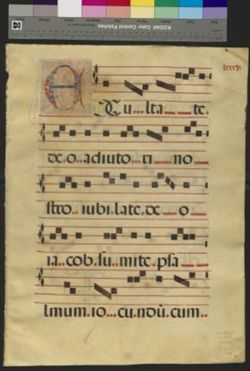 KODAK Color Control Patches
EXu...lta__te.
de.o.adiuto..ri__no__
stro.iubi.late.de__o__
ia..cob.su..mite.psa__
lmum.io...cu.ndū.cum..